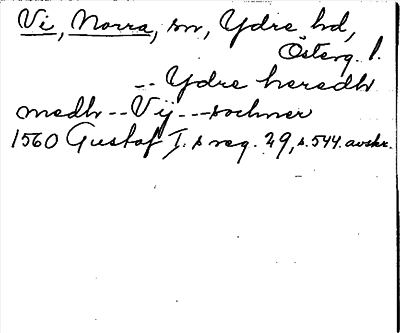 Vi, Norra, sn, Ydre hd,
Österg. l.
-- Ydre heredh
medh -- Vij --- sochner
1560 Gustaf I:s reg. 29, s. 544. avskr.